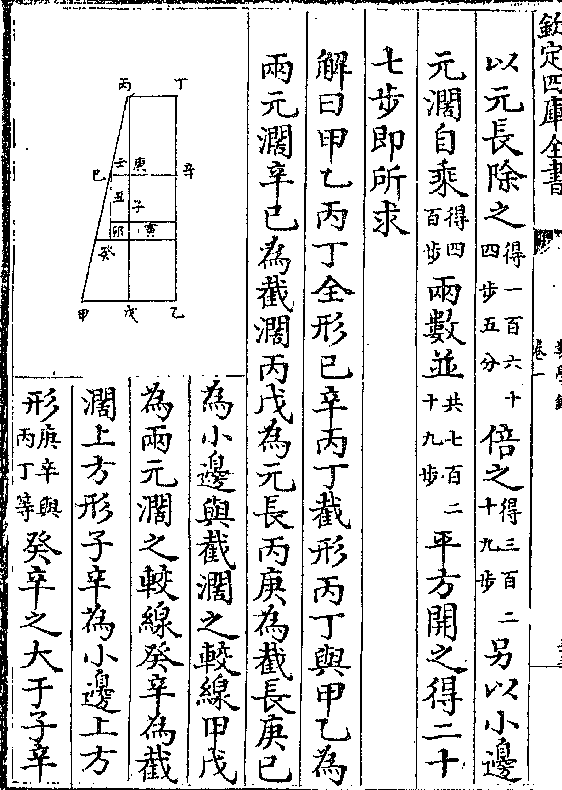 欽定四庫全書
卷一
以元長除之得一百六十四步五分倍之得三百二十九步另以小邊
元濶自乘得四百步兩數並共七百二十九步平方開之得二十
七步即所求
解曰甲乙丙丁全形巳辛丙丁截形丙丁與甲乙為
兩元濶辛巳為截濶丙戊為元長丙庚為截長庚巳
為小邊與截濶之較線甲戊
為兩元濶之較線癸辛為截
濶上方形子辛為小邊上方
形庚辛與丙丁等癸辛之大于子辛
丁
丙
辛
庚
壬
巳
子
丑
寅
卯
癸
乙
戊
甲